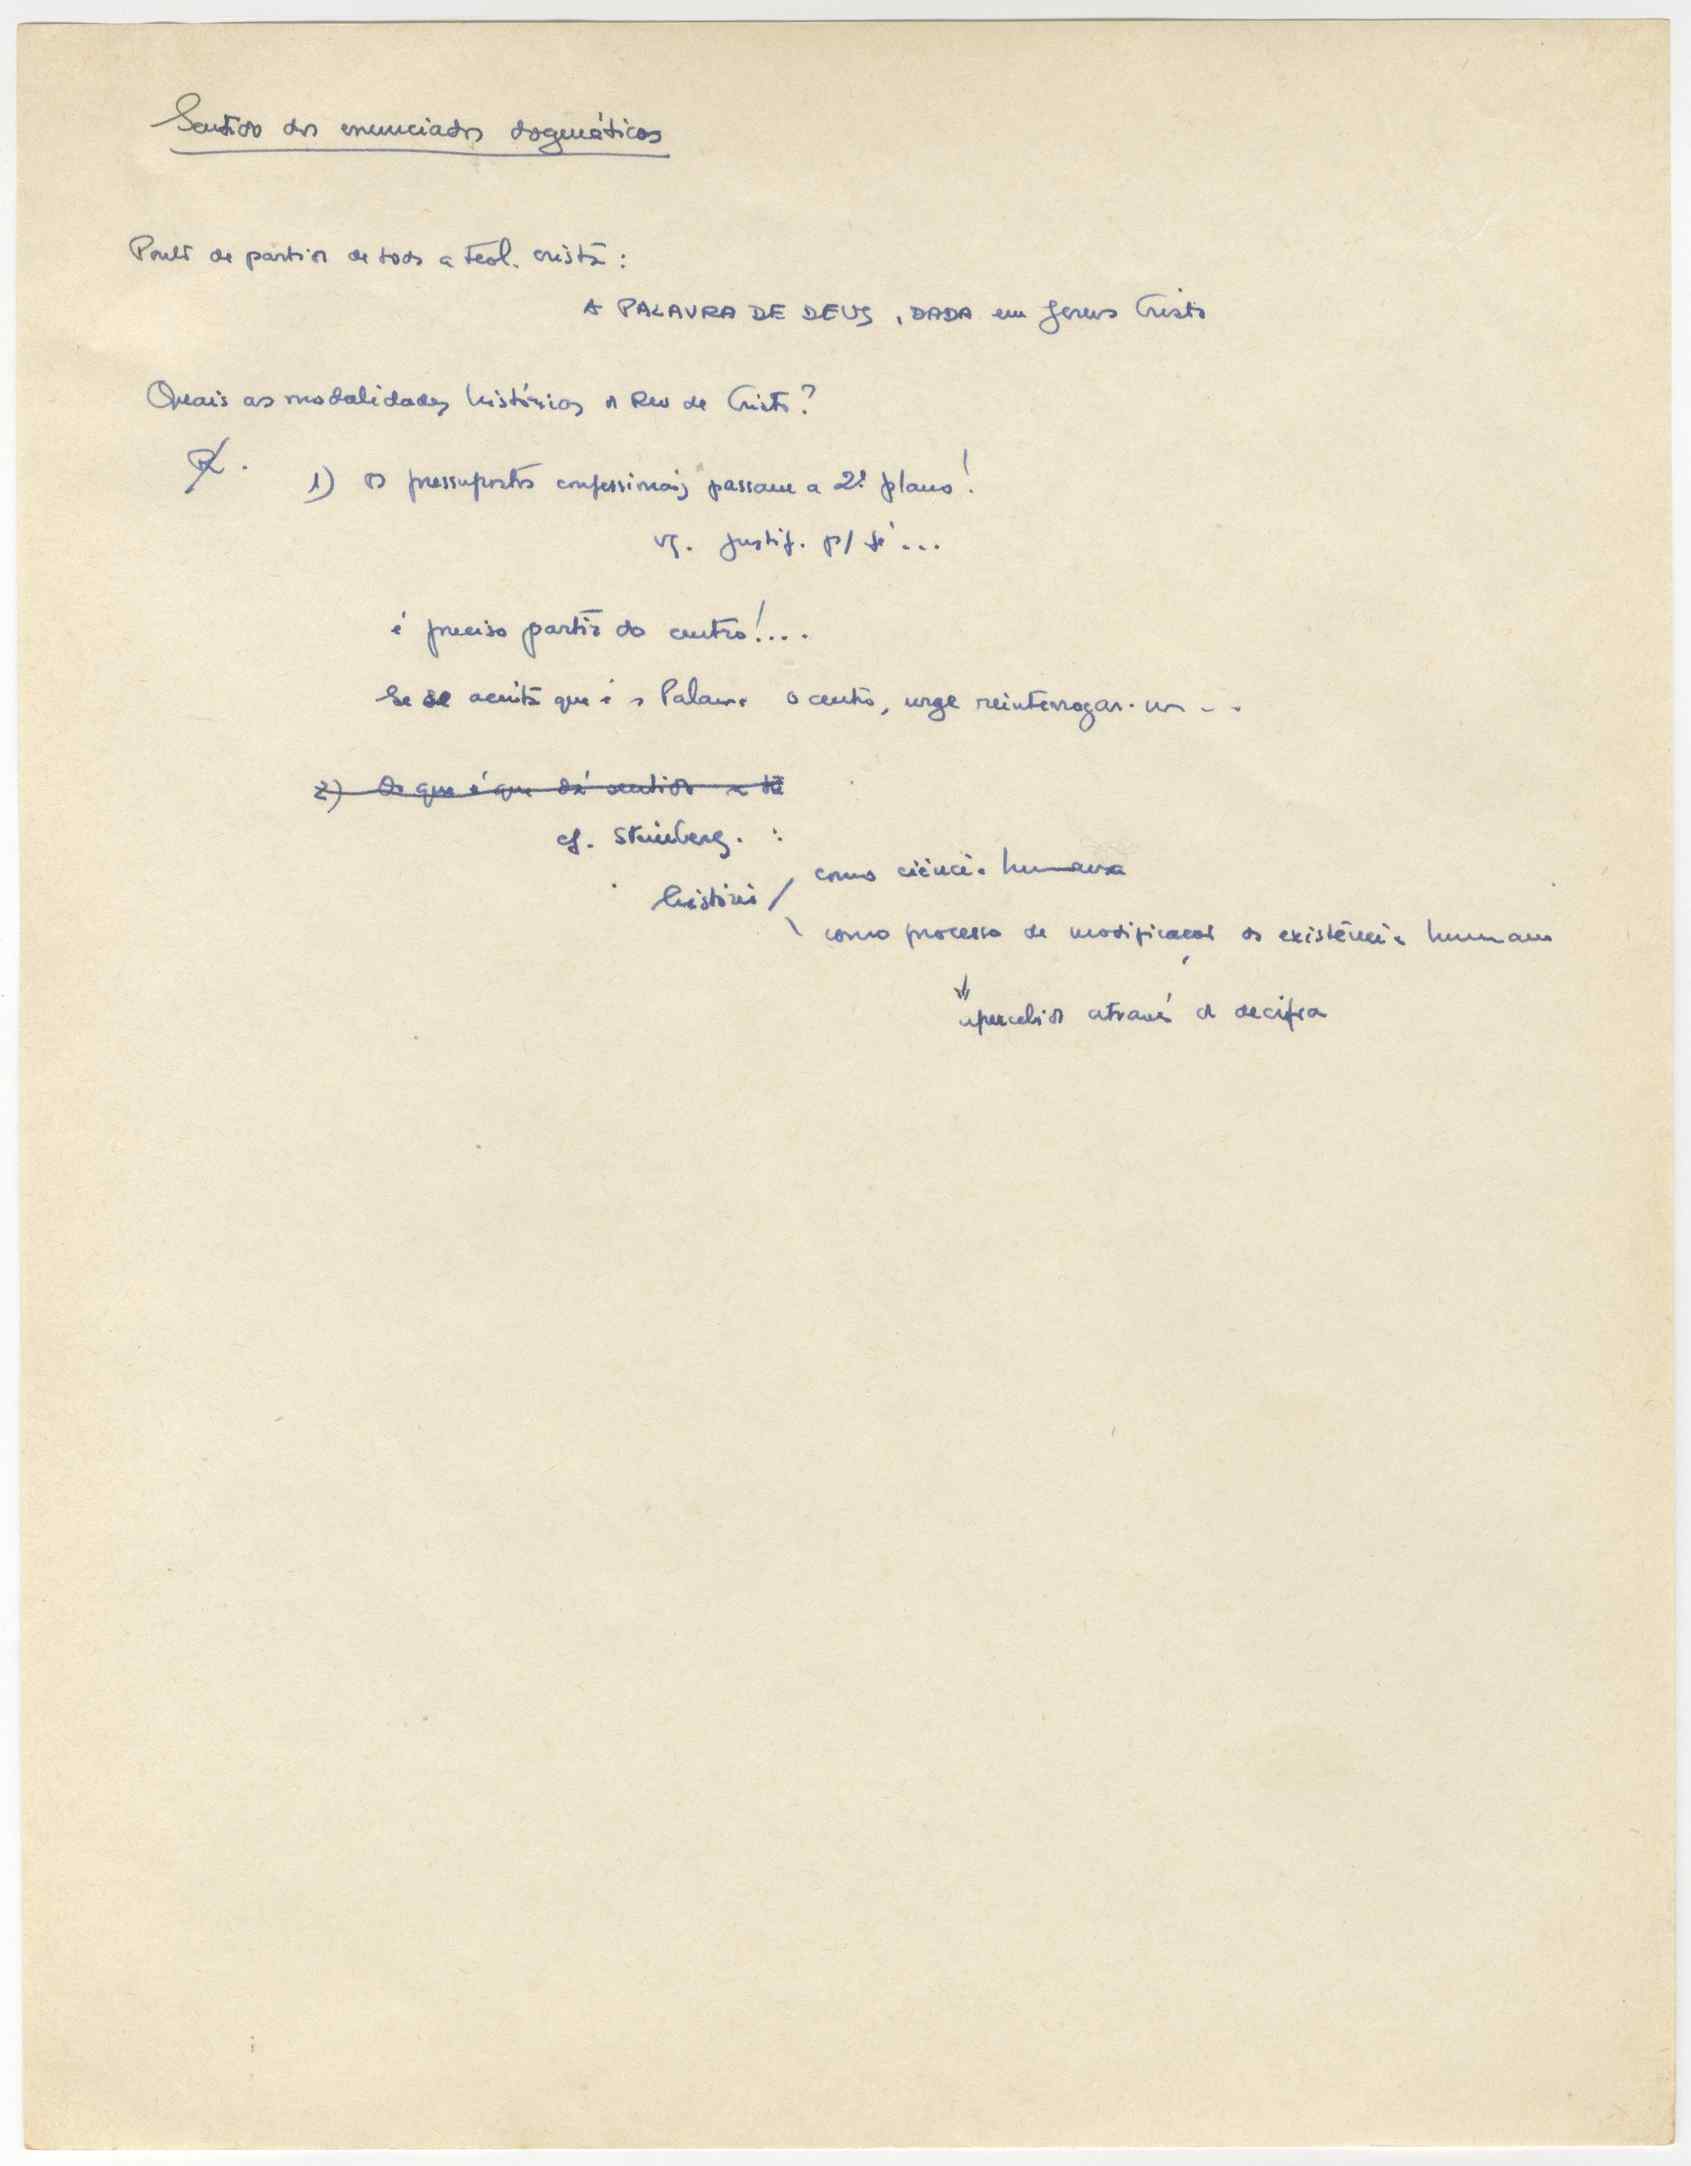 Sentido dos enunciados dogmáticos
Ponto de partida de toda a teol. cristã:
A PALAVRA DE DEUS, DADA em Jesus Cristo
Quais as modalidades históricas da Rev de Cristo?
R.
1) os pressupostos confessionais passam a 2º plano!
vg. justif. p/ fé...
é preciso partir do centro!...
Se se aceita que é a Palavra o centro, urge reinterrogar-nos...
2) O que é que dá sentido a
cf. Steinberg. :
história / como ciência humana
\ como processo de modificação da existência humana
apercebido através da decifra